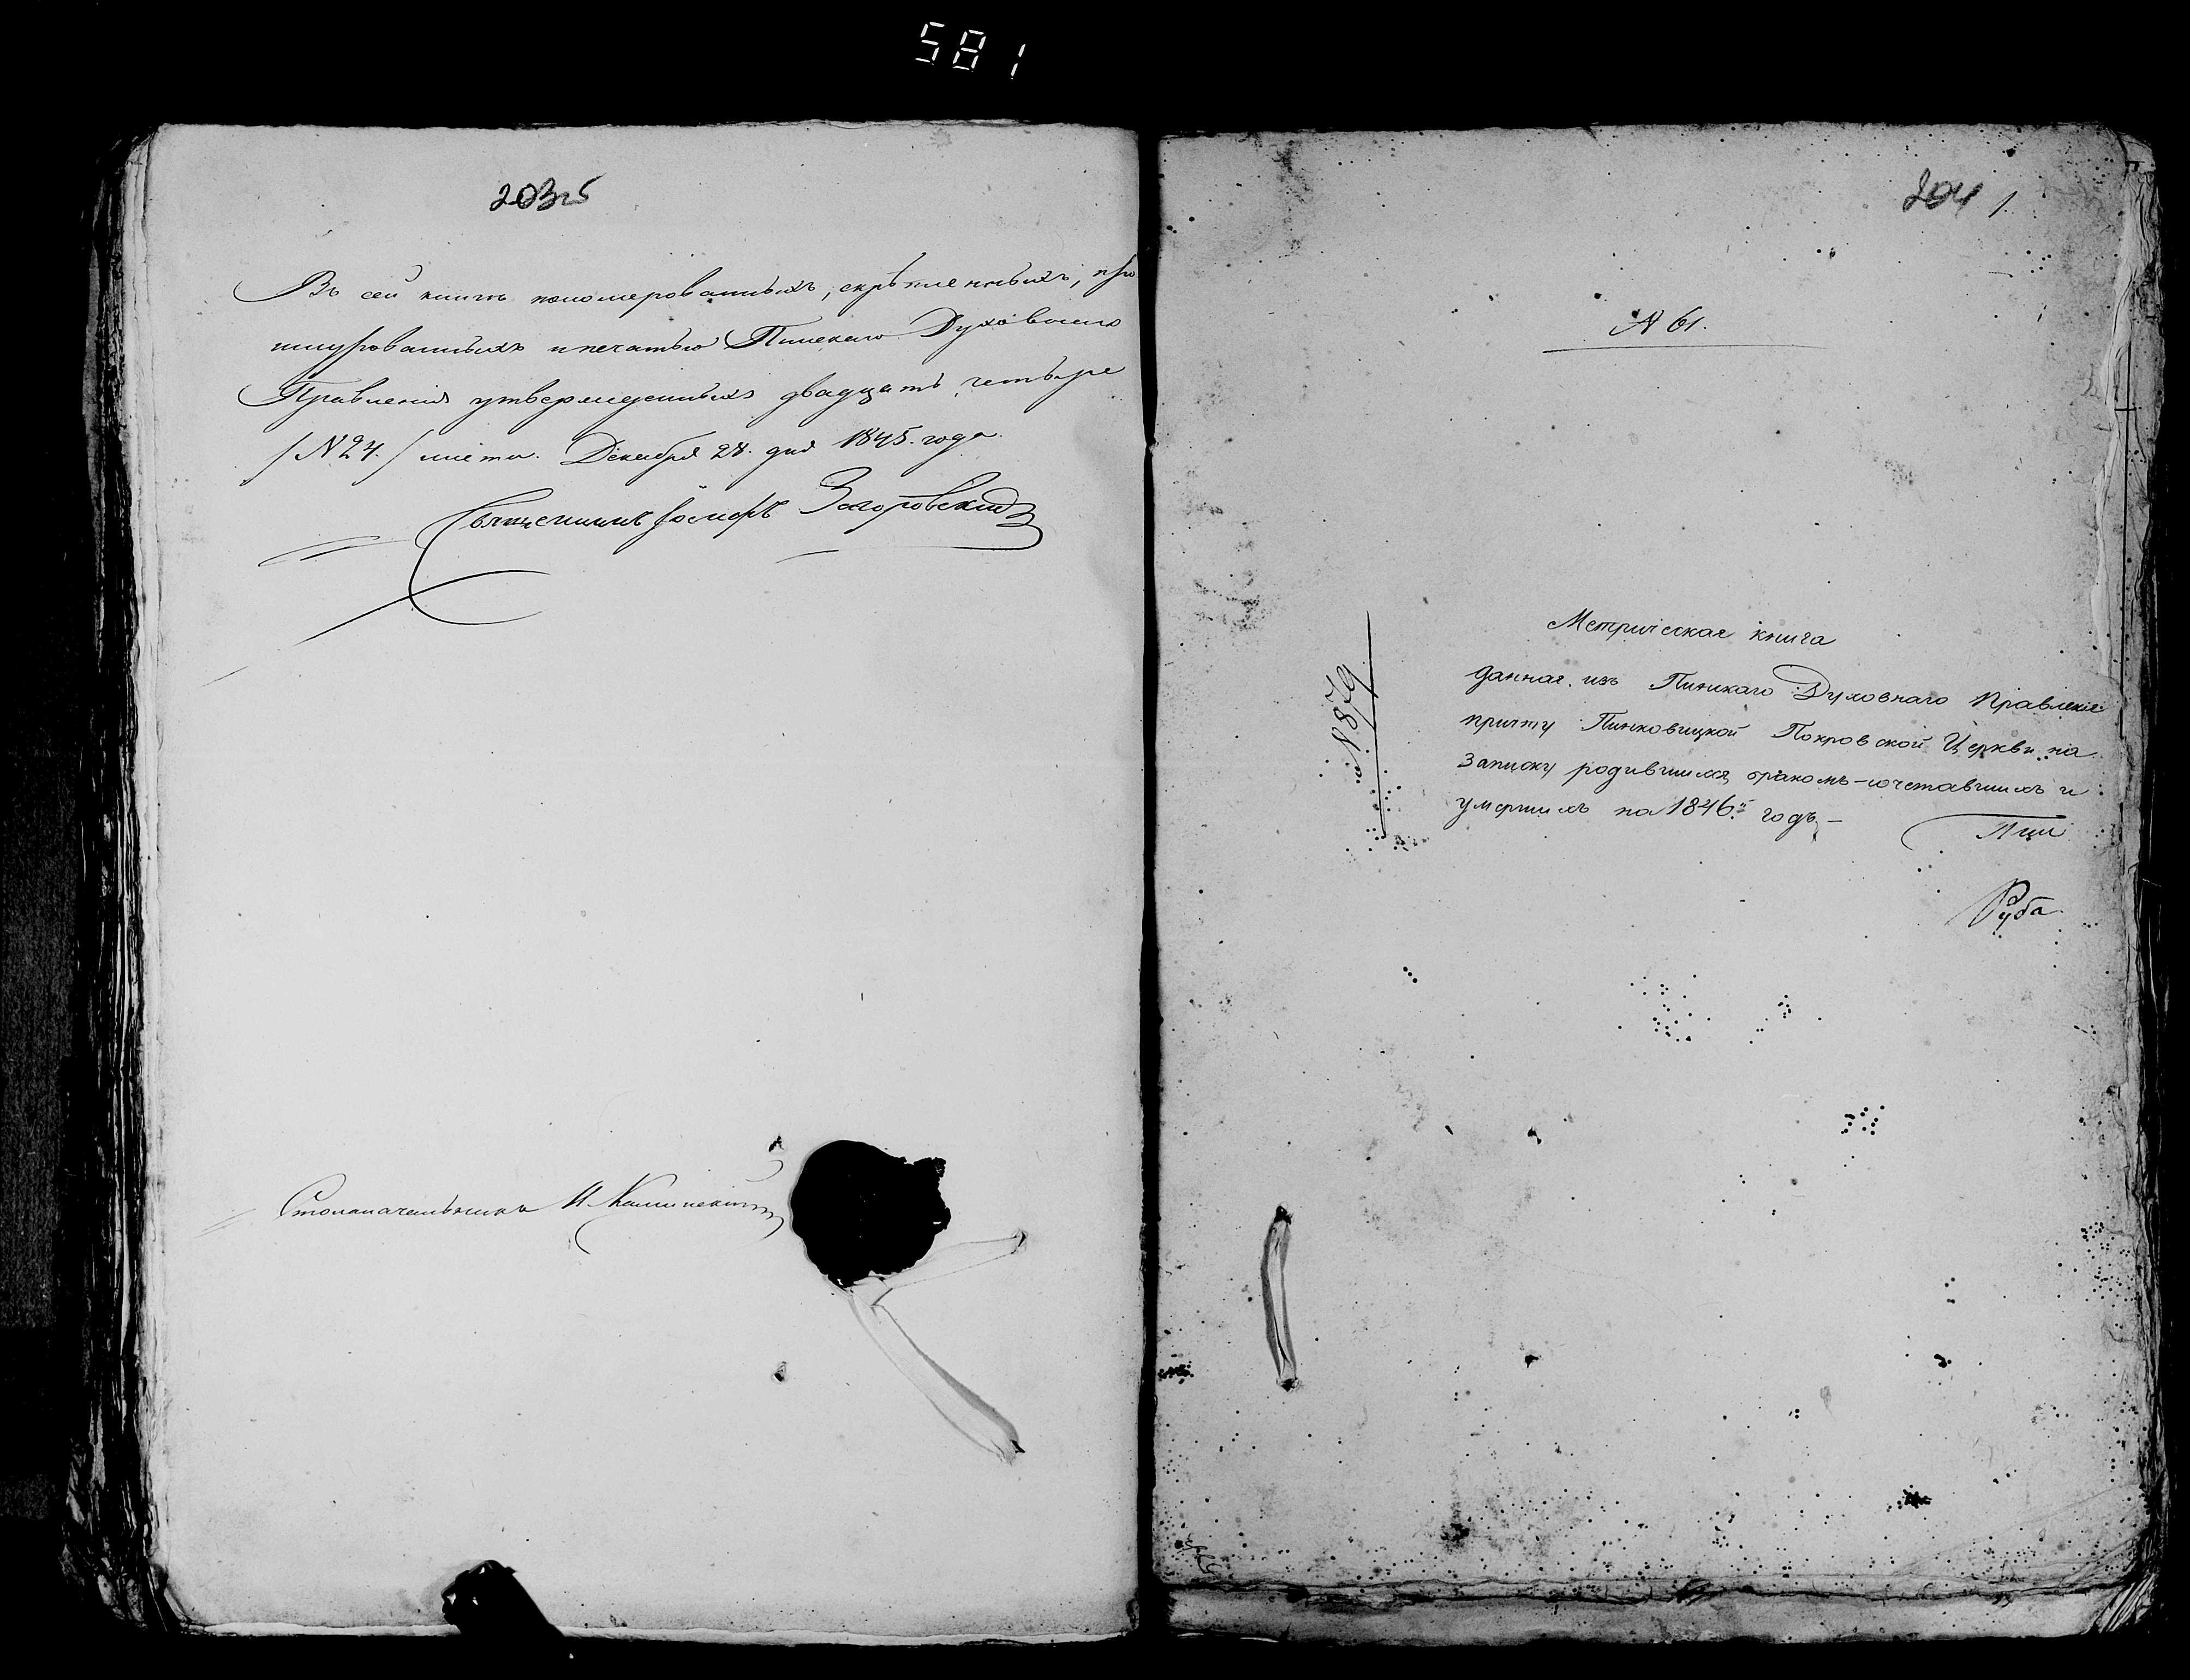 581
203об
Въ сей книгѣ пономерованныхъ, скрѣпленныхъ, про
шнурованныхъ и печатью Пинскаго Духовнаго
Правленія утвержденныхъ двадцать четыре
/№ 24./ листа. Декабря 28. дня 1845. года.
Священникъ Іосифъ Загоровскій
Столоначальникъ И Калинскій
204 1.
№ 61.
№ 1879
Метрическая книга
данная изъ Пинскаго Духовнаго Правленія
причту Пинковицкой Покровской Церкви на
записку родившихся, бракомъ-сочетавшихъ и
умершихъ на 1846.й годъ,—
Руба